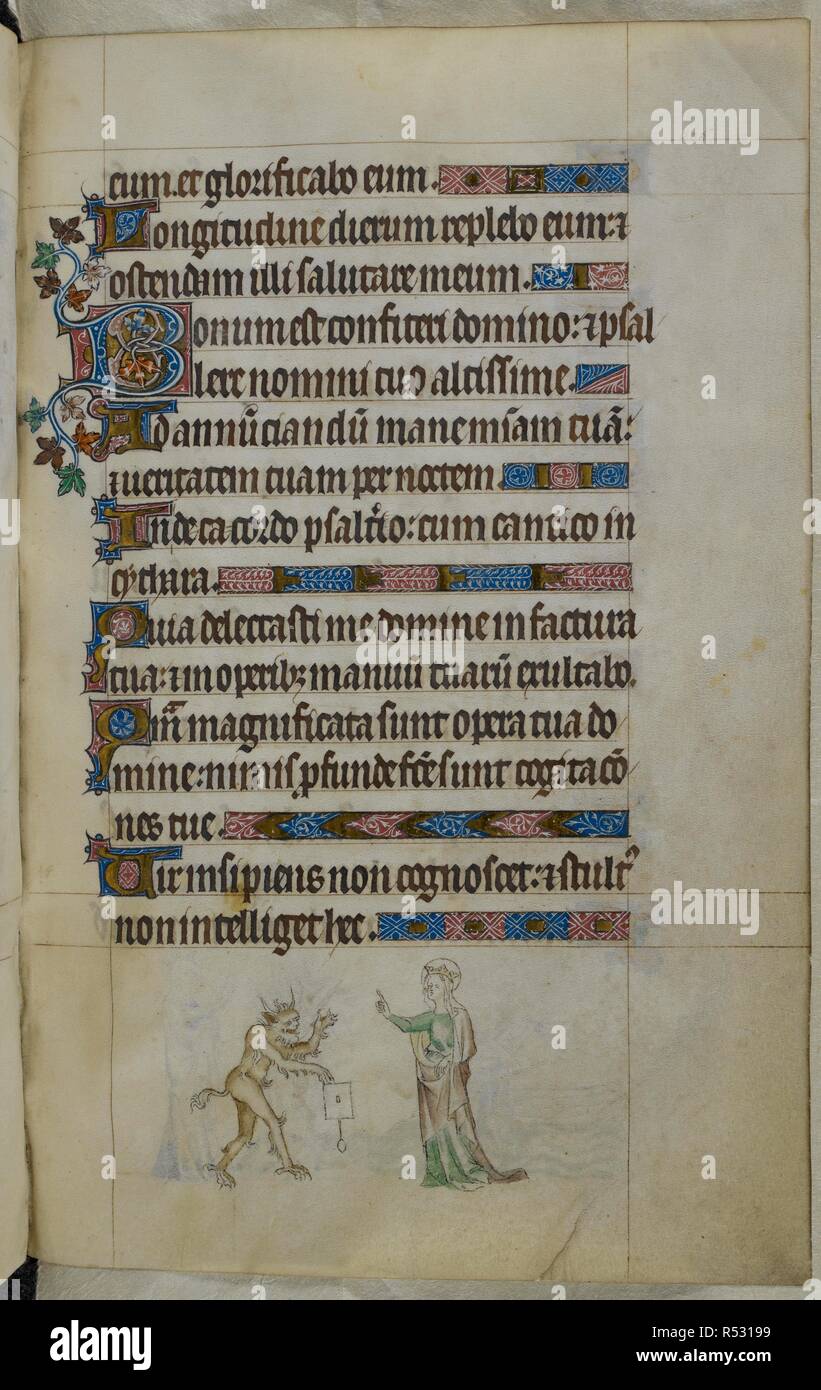 eum. et glorificabo eum.
Longitudine dierum replebo eum: ⁊
ostendam illi salutare meum.
Bonum est confiteri domino: ⁊ psal
lere nomini tuo altissime.
Ad annūciandū mane mīam tuā:
⁊ ueritatem tuam per noctem.
In decacordo psaltīo: cum cantico in
cythara.
Quia delectasti me domine in factura
tua: ⁊ in operibꝫ manuū tuarū exultabo.
Qᵃm magnificata sunt opera tua do
mine: nimis ꝓfunde fc̄e sunt cogitacō
nes tue.
Uir insipiens non cognoscet: ⁊ stultꝰ
non intelliget hec.
alamy stock photo
a
alamy
Image ID: R53199
www.alamy.com